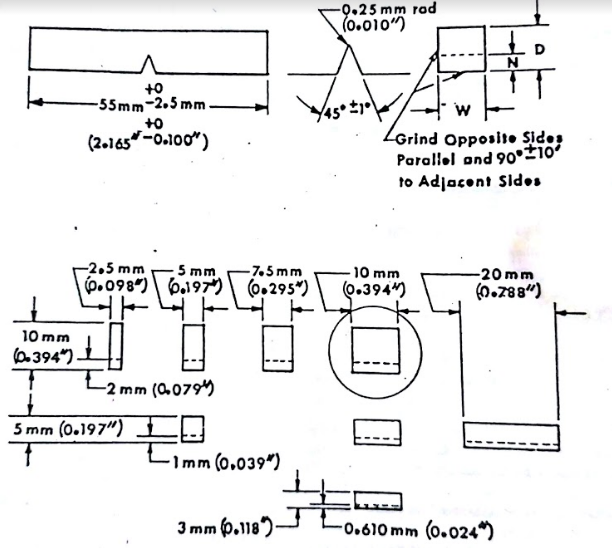 0.25 mm rad
(0.010")
D
N
W
+0
55mm-2.5mm
+0
(2.165"-0.100")
45° ±1°
Grind Opposite Sides
Parallel and 90°±10'
to Adjacent Sides
2.5 mm
(0.098")
5 mm
(0.197")
7.5 mm
(0.295")
10 mm
(0.394")
20 mm
(0.788")
10 mm
(0.394")
2 mm (0.079")
5 mm (0.197")
1 mm (0.039")
3 mm (0.118")
0.610 mm (0.024")